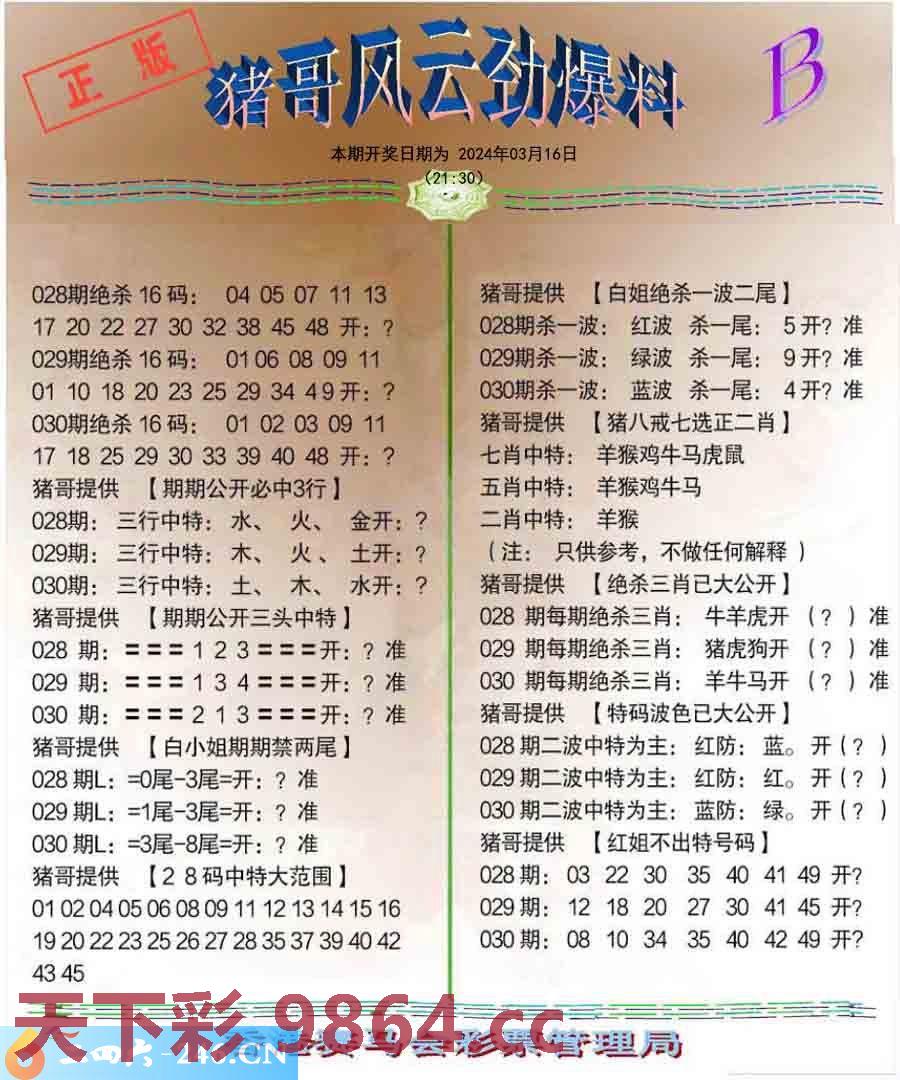 正版
猪哥风云劲爆料
B
本期开奖日期为 2024年03月16日
(21:30)
028期绝杀 16 码： 04 05 07 11 13
17 20 22 27 30 32 38 45 48 开：？
029期绝杀 16 码： 01 06 08 09 11
01 10 18 20 23 25 29 34 49 开：？
030期绝杀 16 码： 01 02 03 09 11
17 18 25 29 30 33 39 40 48 开：？
猪哥提供 【期期公开必中3行】
028期： 三行中特： 水、 火、 金开：？
029期： 三行中特： 木、 火、 土开：？
030期： 三行中特： 土、 木、 水开：？
猪哥提供 【期期公开三头中特】
028 期：＝＝＝ 1 2 3 ＝＝＝开：？准
029 期：＝＝＝ 1 3 4 ＝＝＝开：？准
030 期：＝＝＝ 2 1 3 ＝＝＝开：？准
猪哥提供 【白小姐期期禁两尾】
028 期L：=0尾-3尾=开：？准
029 期L：=1尾-3尾=开：？准
030 期L：=3尾-8尾=开：？准
猪哥提供 【2 8 码中特大范围】
01 02 04 05 06 08 09 11 12 13 14 15 16
19 20 22 23 25 26 27 28 35 37 39 40 42
43 45
猪哥提供 【白姐绝杀一波二尾】
028期杀一波： 红波 杀一尾： 5 开？准
029期杀一波： 绿波 杀一尾： 9 开？准
030期杀一波： 蓝波 杀一尾： 4 开？准
猪哥提供 【猪八戒七选正二肖】
七肖中特： 羊猴鸡牛马虎鼠
五肖中特： 羊猴鸡牛马
二肖中特： 羊猴
（注： 只供参考，不做任何解释 ）
猪哥提供 【绝杀三肖已大公开】
028 期每期绝杀三肖： 牛羊虎开 （？）准
029 期每期绝杀三肖： 猪虎狗开 （？）准
030 期每期绝杀三肖： 羊牛马开 （？）准
猪哥提供 【特码波色已大公开】
028 期二波中特为主：红防：蓝。开（？）
029 期二波中特为主：红防：红。开（？）
030 期二波中特为主：蓝防：绿。开（？）
猪哥提供 【红姐不出特号码】
028 期： 03 22 30 35 40 41 49 开？
029 期： 12 18 20 27 30 41 45 开？
030 期： 08 10 34 35 40 42 49 开？
天下彩 9864.cc
二四六-246.CN
赛马会彩票管理局